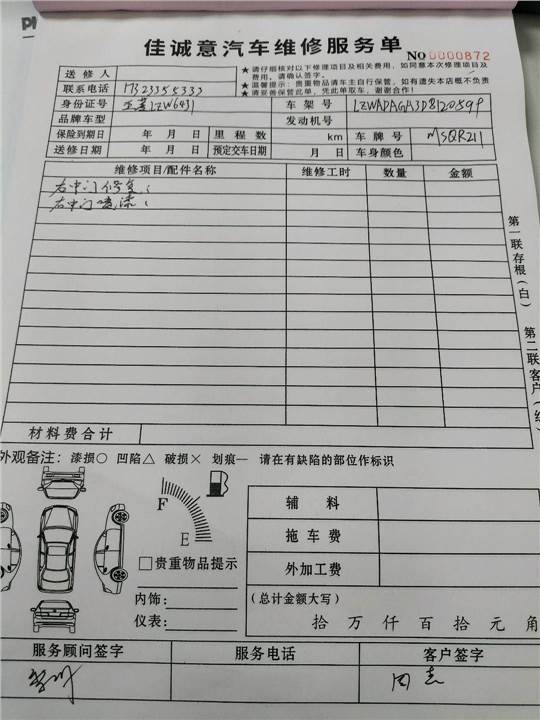 佳诚意汽车维修服务单
NO 0000872
送修人
★请仔细核对以下修理项目及相关费用，如同意本次修理项目及
费用。请确认签字。
联系电话
★温馨提示：贵重物品请车主自行保管，如有遗失本店概不负责
★请妥善保管此单，凭此单取车，谢谢合作！
身份证号 LZW6431 车架号
品牌车型 发动机号
保险到期日 年 月 日 里程数 km 车牌号 MSQR211
送修日期 年 月 日 预定交车日期 月 日 车身颜色
维修项目/配件名称 维修工时 数量 金额
右中门修复
右中门喷漆
第一联存根（白）
第二联客户（红
材料费合计
外观备注：漆损○ 凹陷△ 破损× 划痕一 请在有缺陷的部位作标识
F
E
辅料
拖车费
外加工费
□贵重物品提示
内饰：
仪表：
（总计金额大写）
拾万仟百拾元角
服务顾问签字 服务电话 客户签字